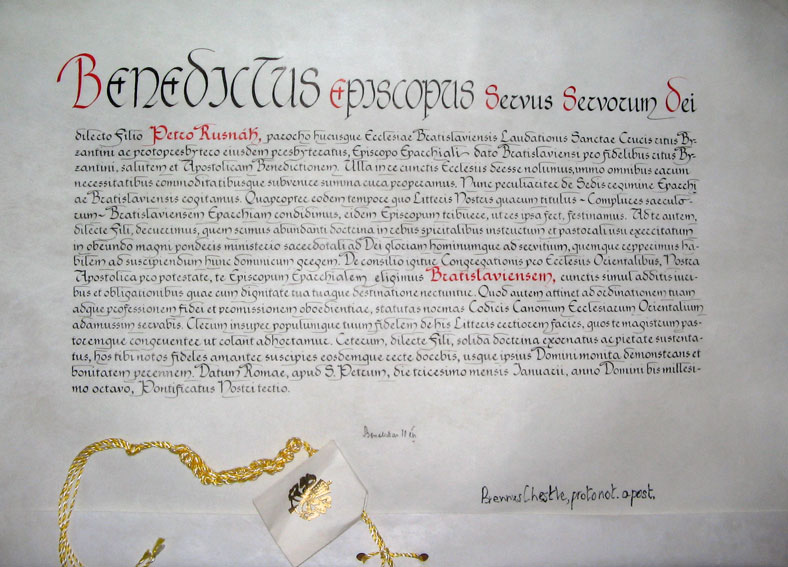 Benedictus Episcopus Servus Servorum Dei
dilecto Filio Petro Rusnák, parocho hucusque Ecclesiae Bratislaviensis Laudationis Sanctae Crucis ritus By-
zantini ac protopresbytero eiusdem presbyteratus, Episcopo Eparchiali dato Bratislaviensi pro fidelibus ritus By-
zantini, salutem et Apostolicam Benedictionem. Ulla in re cunctis Ecclesiis deesse nolumus, immo omnibus earum
necessitatibus commoditatibusque subvenire summa cura properamus. Nunc peculiariter de Sedis regimine Eparchi
ac Bratislaviensis cogitamus. Quapropter eodem tempore quo Litteris Nostris quarum titulus - Complures saeculo-
rum - Bratislaviensem Eparchiam condidimus, eidem Episcopum tribuere, ut res ipsa fert, festinamus. Ad te autem,
dilecte Fili, decurrimus, quem scimus abundanti doctrina in rebus spiritalibus instructum et pastorali usu exercitatum
in obeundo magni ponderis ministerio sacerdotali ad Dei gloriam hominumque ad servitium, quemque repperimus ha-
bilem ad suscipiendum hunc dominicum gregem. De consilio igitur Congregationis pro Ecclesiis Orientalibus, Nostra
Apostolica pro potestate, te Episcopum Eparchialem eligimus Bratislaviensem, cunctis simul additis iuri-
bus et obligationibus quae cum dignitate tua tuaque destinatione nectuntur. Quod autem attinet ad ordinationem tuam
adque professionem fidei et promissionem oboedientiae, statutas normas Codicis Canonum Ecclesiarum Orientalium
adamussim servabis. Clerum insuper populumque tuum fidelem de his Litteris certiorem facies, quos te magistrum pas-
toremque congruenter ut colant adhortamur. Ceterum, dilecte Fili, solida doctrina exornatus ac pietate sustenta-
tus, hos tibi notos fideles amanter suscipies eosdemque recte docebis, usque ipsius Domini monita demonstrans et
bonitatem perennem. Datum Romae, apud S. Petrum, die tricesimo mensis Ianuarii, anno Domini bis millesi-
mo octavo, Pontificatus Nostri tertio.
protonot. apost.